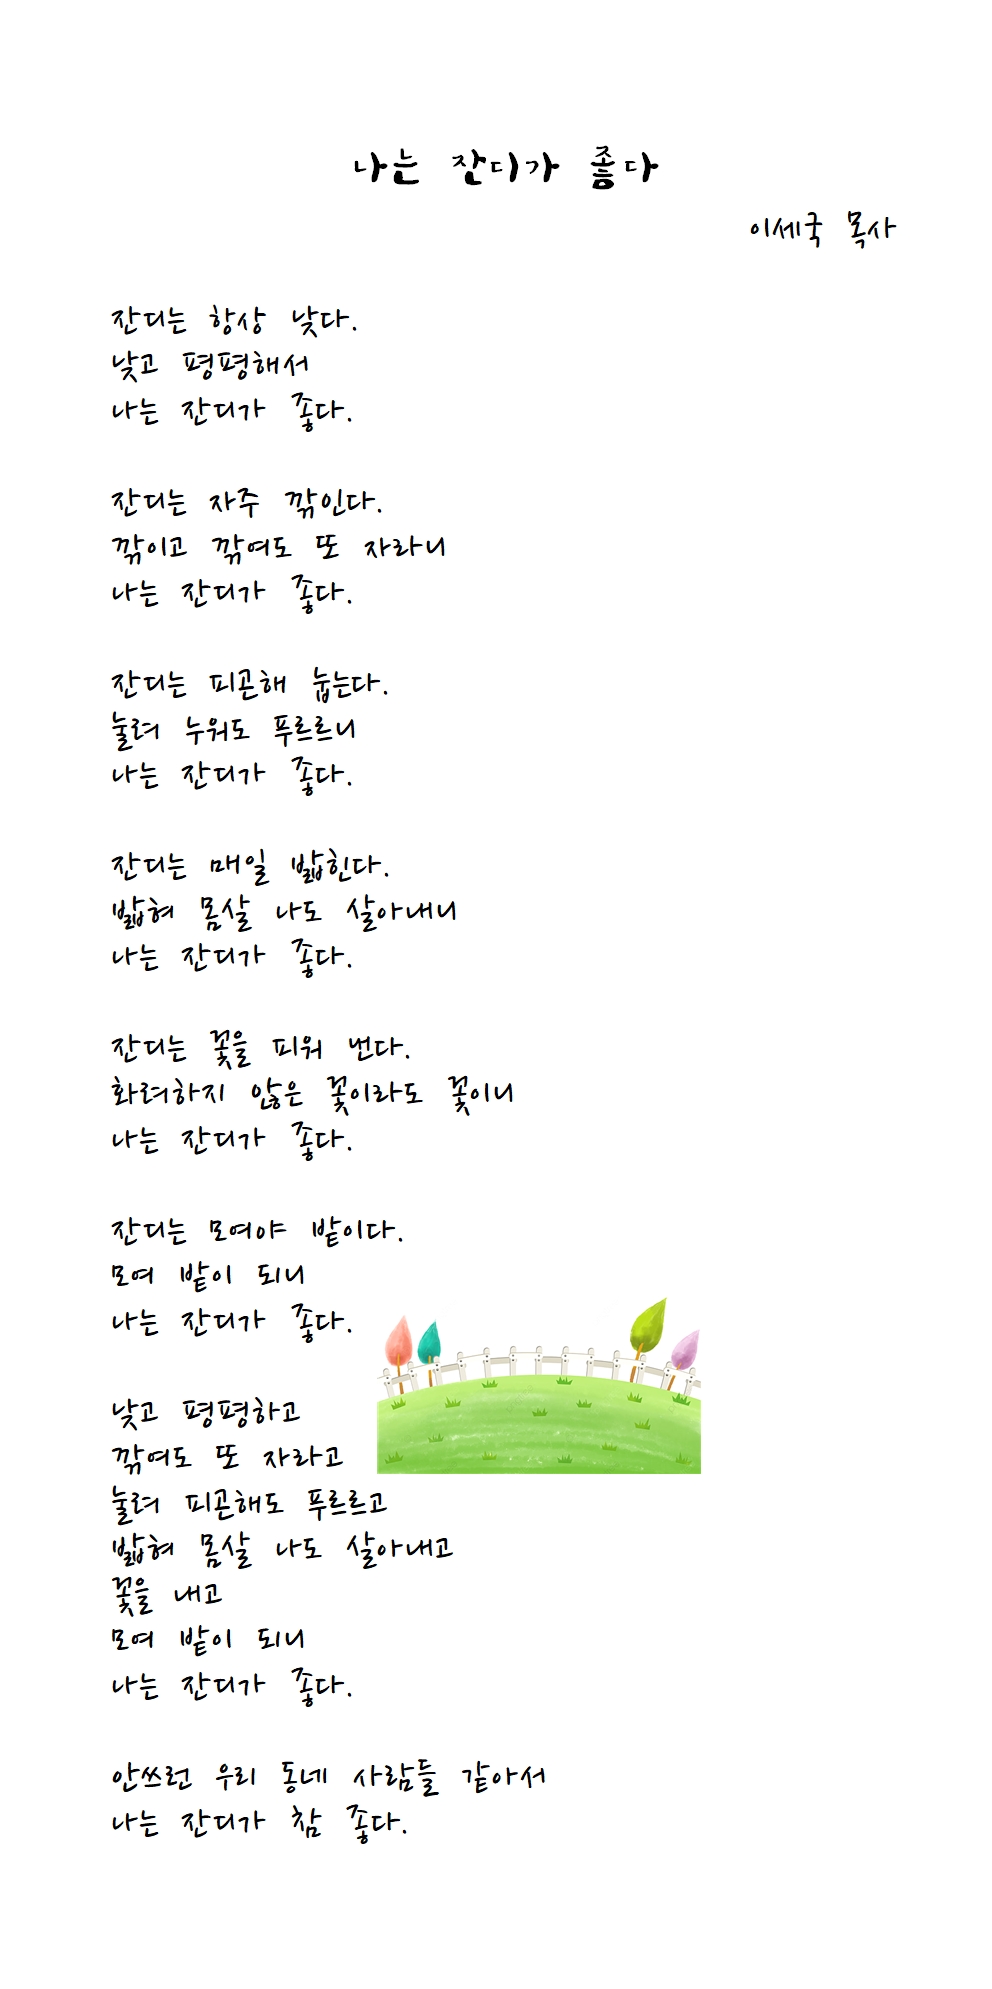 나는 잔디가 좋다
이세국 목사
잔디는 항상 낮다.
낮고 평평해서
나는 잔디가 좋다.
잔디는 자주 깎인다.
깎이고 깎여도 또 자라니
나는 잔디가 좋다.
잔디는 피곤해 눕는다.
눌려 누워도 푸르르니
나는 잔디가 좋다.
잔디는 매일 밟힌다.
밟혀 몸살 나도 살아내니
나는 잔디가 좋다.
잔디는 꽃을 피워 번다.
화려하지 않은 꽃이라도 꽃이니
나는 잔디가 좋다.
잔디는 모여야 밭이다.
모여 밭이 되니
나는 잔디가 좋다.
낮고 평평하고
깎여도 또 자라고
눌려 피곤해도 푸르르고
밟혀 몸살 나도 살아내고
꽃을 내고
모여 밭이 되니
나는 잔디가 좋다.
안쓰런 우리 동네 사람들 같아서
나는 잔디가 참 좋다.